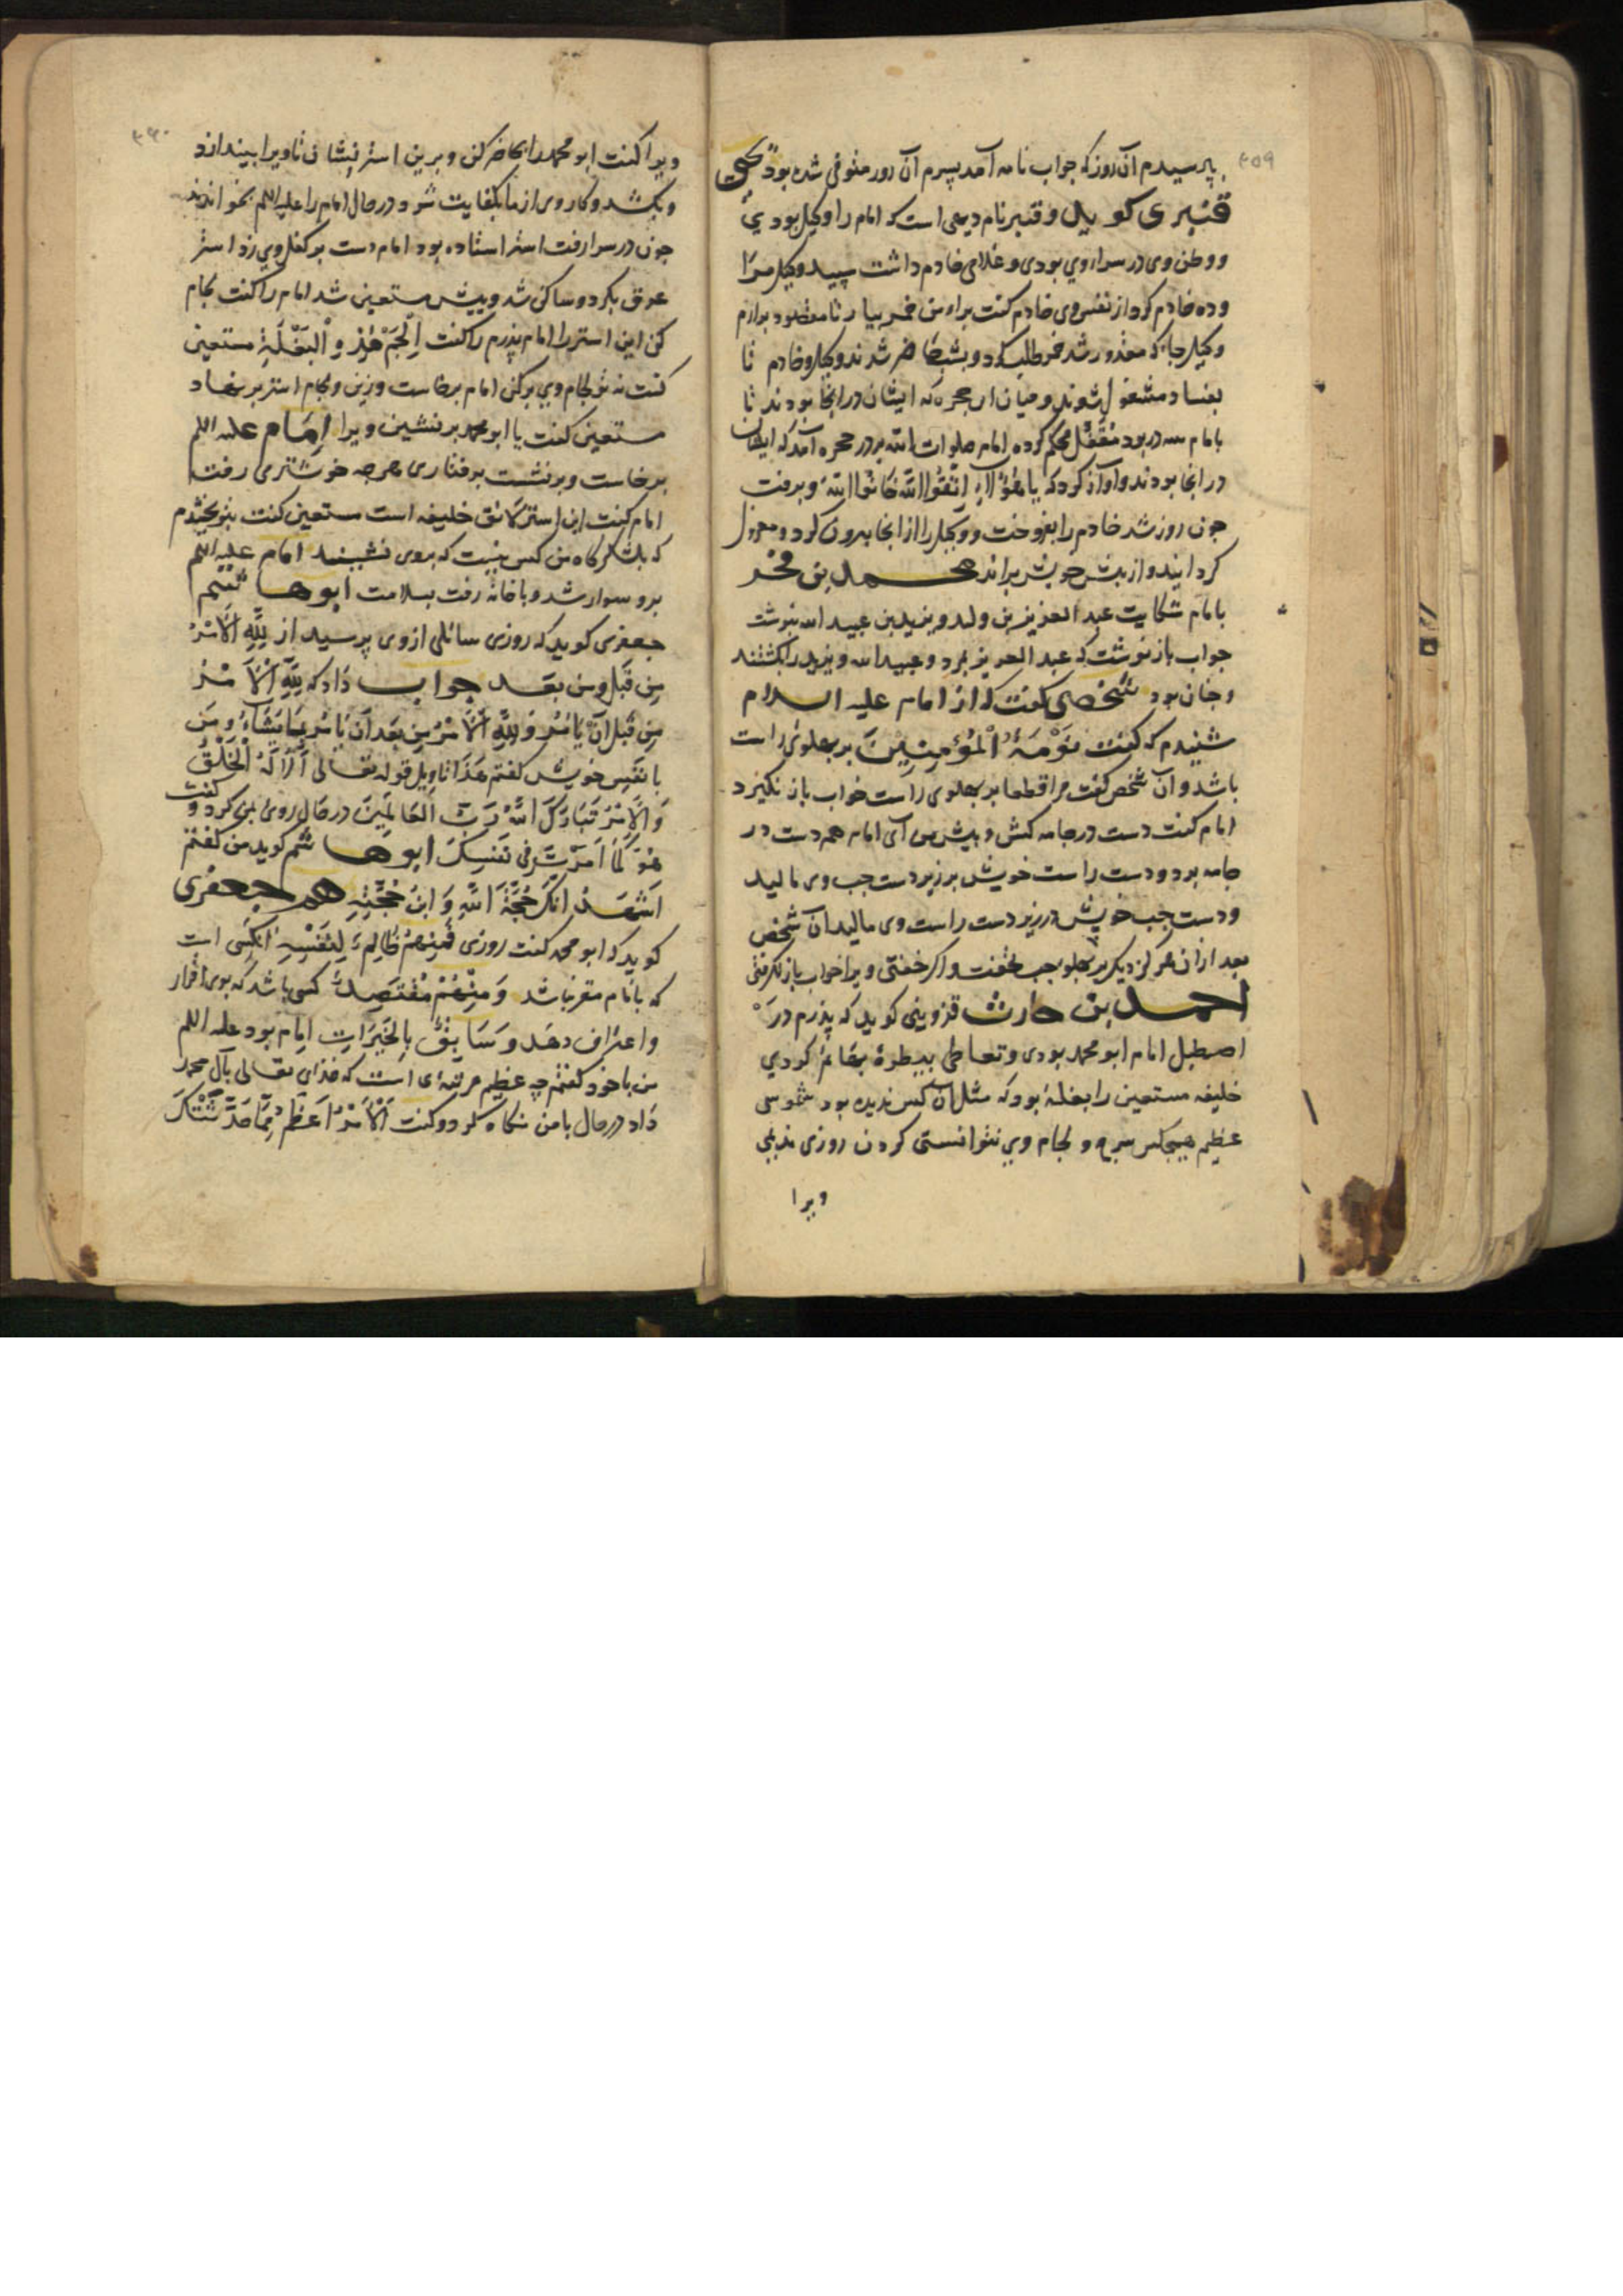 ۳۵۹
بپرسیدم آن روز که جواب نامه آمد پسرم آن روز متوفی شده بود یحیی
قنبری کوید و قنبر نام دیهی است که امام را وکیل بودی
و وطن وی در سراء وی بودی و غلامی خادم داشت سپید وکیل مرا
وده خادم کرد از نفس وی خادم کفت براء من خمر بیار تا مقصود برارم
وکیل حیا که مقدور شد خمر طلب کرد و بشب حاضر شدند وکیل و خادم تا
بفساد مشغول شوند و میان ان حجره که ایشان در انجا بودند تا
بامام سه در بود مقفل محکم کرده امام صلوات الله بر در حجره آمد که ایشان
در انجا بودند و آواز کرد که یا هؤلاء اتقوا الله خافوا الله و برفت
جون روز شد خادم را بفروخت و وکیل را از انجا بیرون کرد و معزول
کردانید و از پیش خویش براند محمد بن حجر
بامام شکایت عبد العزیز بن ولد و یزید بن عبید الله نبوشت
جواب باز نوشت که عبد العزیز بمرد و عبید الله و یزید را بکشتند
و جنان بود شخصی کفت که از امام علیه السلام
شنیدم که کفت نومة المؤمنین بر پهلوی راست
باشد و آن شخص کفت مرا قطعا بر پهلوی راست خواب باز نکیرد
امام کفت دست در جامه کش و پیش من آی امام هم دست در
جامه برد و دست راست خویش بر زیر دست جب وی مالید
و دست جب خویش در زیر دست راست وی مالید آن شخص
بعد ازان هرکز دیکر بر پهلو جب نخفت و اکر خفتی ویرا خواب باز نکرفتی
احمد بن حارث قزوینی کوید که پدرم در
اصطبل امام ابو محمد بودی و تعاطی بیطرهٔ بهائم کردی
خلیفه مستعین را بغلهٔ بود که مثل آن کس ندیده بود شموسی
عظیم هیجکس سرج و لجام وی نتوانستی کردن روزی ندیمی
ویرا
۳۶۰
ویرا کفت ابو محمد را بحاضر کن و برین استر بنشان تا ویرا بیندازد
و بکشد و کار وی از ما بکفایت شود در حال امام را علیه السلم بخواندند
جون در سرا رفت استر استاده بود امام دست بر کفل وی زد استر
عرق بکرد و ساکن شد و پیش مستعین شد امام را کفت لجام
کن این استر را امام پدرم را کفت الجم هذه البغلة مستعین
کفت نه تو لجام وی بر کن امام برخاست و زین و لجام استر بر نهاد
مستعین کفت یا ابو محمد بر نشین ویرا امام علیه السلم
برخاست و بر نشست برفتاری هرجه خوشتر می رفت
امام کفت این استر لایق خلیفه است مستعین کفت بتو بخشیدم
که بلشکرکاه من کس نیست که بروی نشیند امام علیه السلم
برو سوار شد و باخانه رفت بسلامت ابو هاشم
جعفری کوید که روزی سائلی ازوی پرسید از لله الامر
من قبل و من بعد جواب داد که لله الامر
من قبل ان یامر و لله الامر من بعد ان یامر بما یشاء و من
بانفس خویش کفتم هذا تاویل قوله تعالی الا له الخلق
و الامر تبارک الله رب العالمین در حال روی بمن کرد و کفت
هو کما امرت فی نفسک ابو هاشم کوید من کفتم
اشهد انک حجة الله و ابن حجته هم جعفری
کوید که ابو محمد کفت روزی فمنهم ظالم لنفسه انکسی است
که بامام مقر نباشد و منهم مقتصد کسی باشد که بوی اقرار
و اعتراف دهد و سابق بالخیرات امام بود علیه السلم
من باخود کفتم چه عظیم مرتبهٔ است که خدای تعالی بآل محمد
داد در حال بامن نکاه کرد و کفت الامر اعظم مما حدثتک